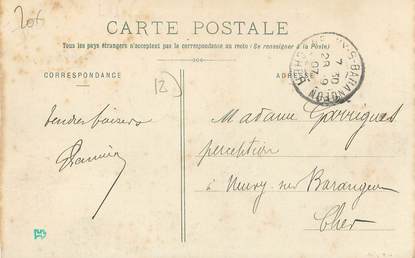 206
CARTE POSTALE
Tous les pays étrangers n'acceptent pas la correspondance au recto (Se renseigner à la Poste)
CORRESPONDANCE
ADRESSE
12
7 30
29 9
07
CHER
tendres baisers
Madame Garrigues
perception
à Neuvy sur Barangeon
Cher